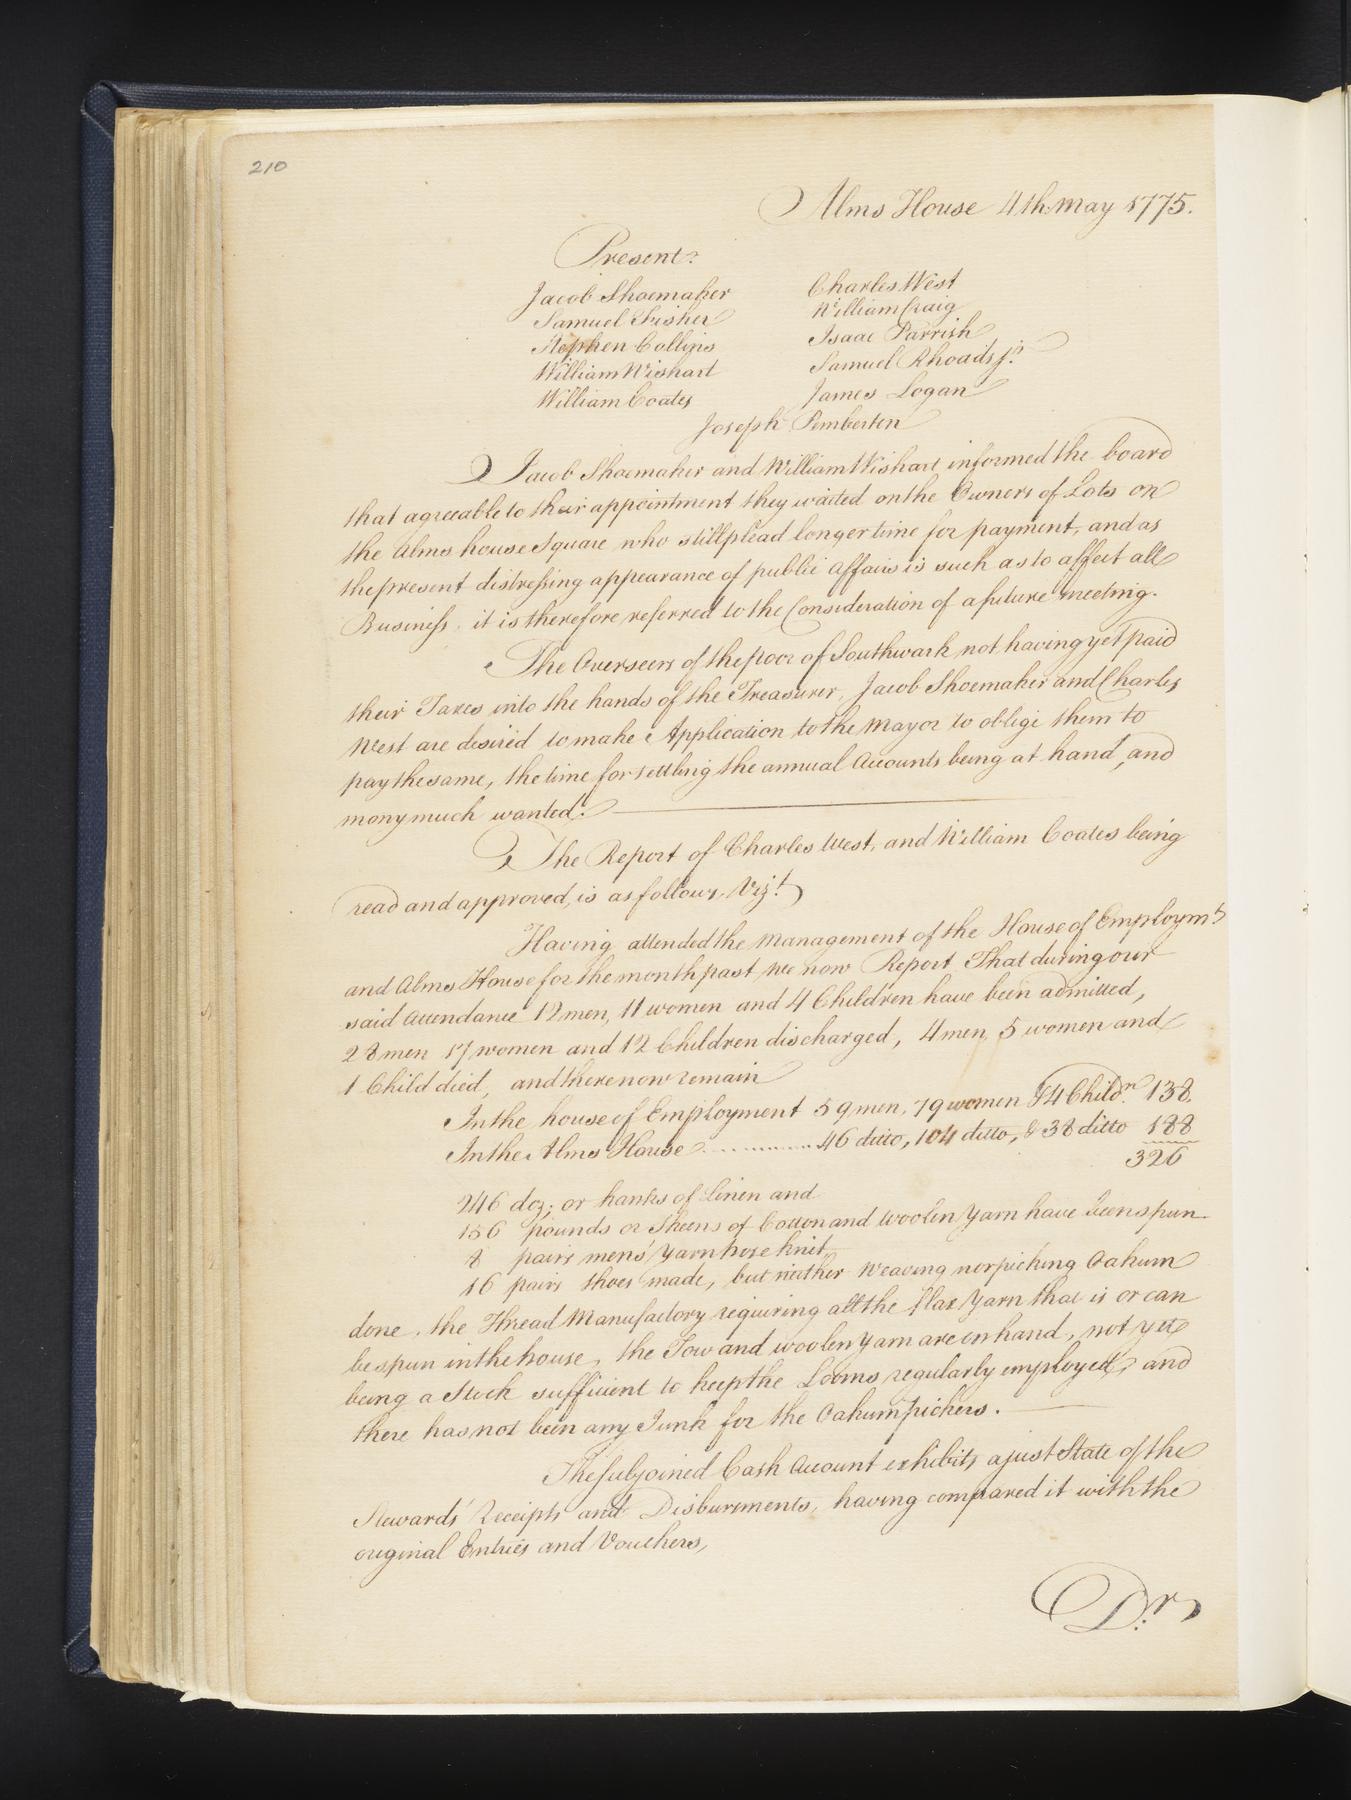 210
Alms House 4th. May 1775.
Present.
Jacob Shoemaker
Samuel Fisher
Stephen Collins
William Wishart
William Coates
Charles West
William Craig
Isaac Parrish
Samuel Rhoads jr.
James Logan
Joseph Pemberton
Jacob Shoemaker and William Wishart informed the board
that agreeable to their appointment they waited on the Owners of Lots on
the Alms house Square who still plead longer time for payment, and as
the present distressing appearance of public affairs is such as to affect all
Business. it is therefore referred to the Consideration of a future meeting.
The Overseers of the poor of Southwark not having yet paid
their Taxes into the hands of the Treasurer, Jacob Shoemaker and Charles
West are desired to make Application to the Mayor to oblige them to
pay the same, the time for settling the annual Accounts being at hand, and
mony much wanted.
The Report of Charles West, and William Coates being
read and approved, is as follows, Vizt.
Having attended the management of the House of Employmt.
and Alms House for the month past we now Report That during our
said Attendance 12 men, 11 women and 4 Children have been admitted,
28 men 17 women and 12 Children discharged, 4 men, 5 women and
1 Child died, and there now remain
In the house of Employment 59 men, 79 women & 4 Childn. 138.
In the Alms House ............ 46 ditto, 104 ditto, & 38 ditto 188
326
246 doz; or hanks of linen and
156 pounds or Skeens of Cotton and woolen Yarn have been spun
8 pairs mens' Yarn hose knit
16 pairs shoes made, but neither Weaving nor picking Oakum
done, the Thread Manufactory requiring all the flax Yarn that is or can
be spun in the house, the Tow and woolen Yarn are on hand, not yet
being a Stock sufficient to keep the Looms regularly employed, and
there has not been any Junk for the Oakum pickers.
The subjoined Cash Account exhibits a just State of the
Stewards' Receipts and Disbursments, having compared it with the
original Entries and Vouchers,
Dr.